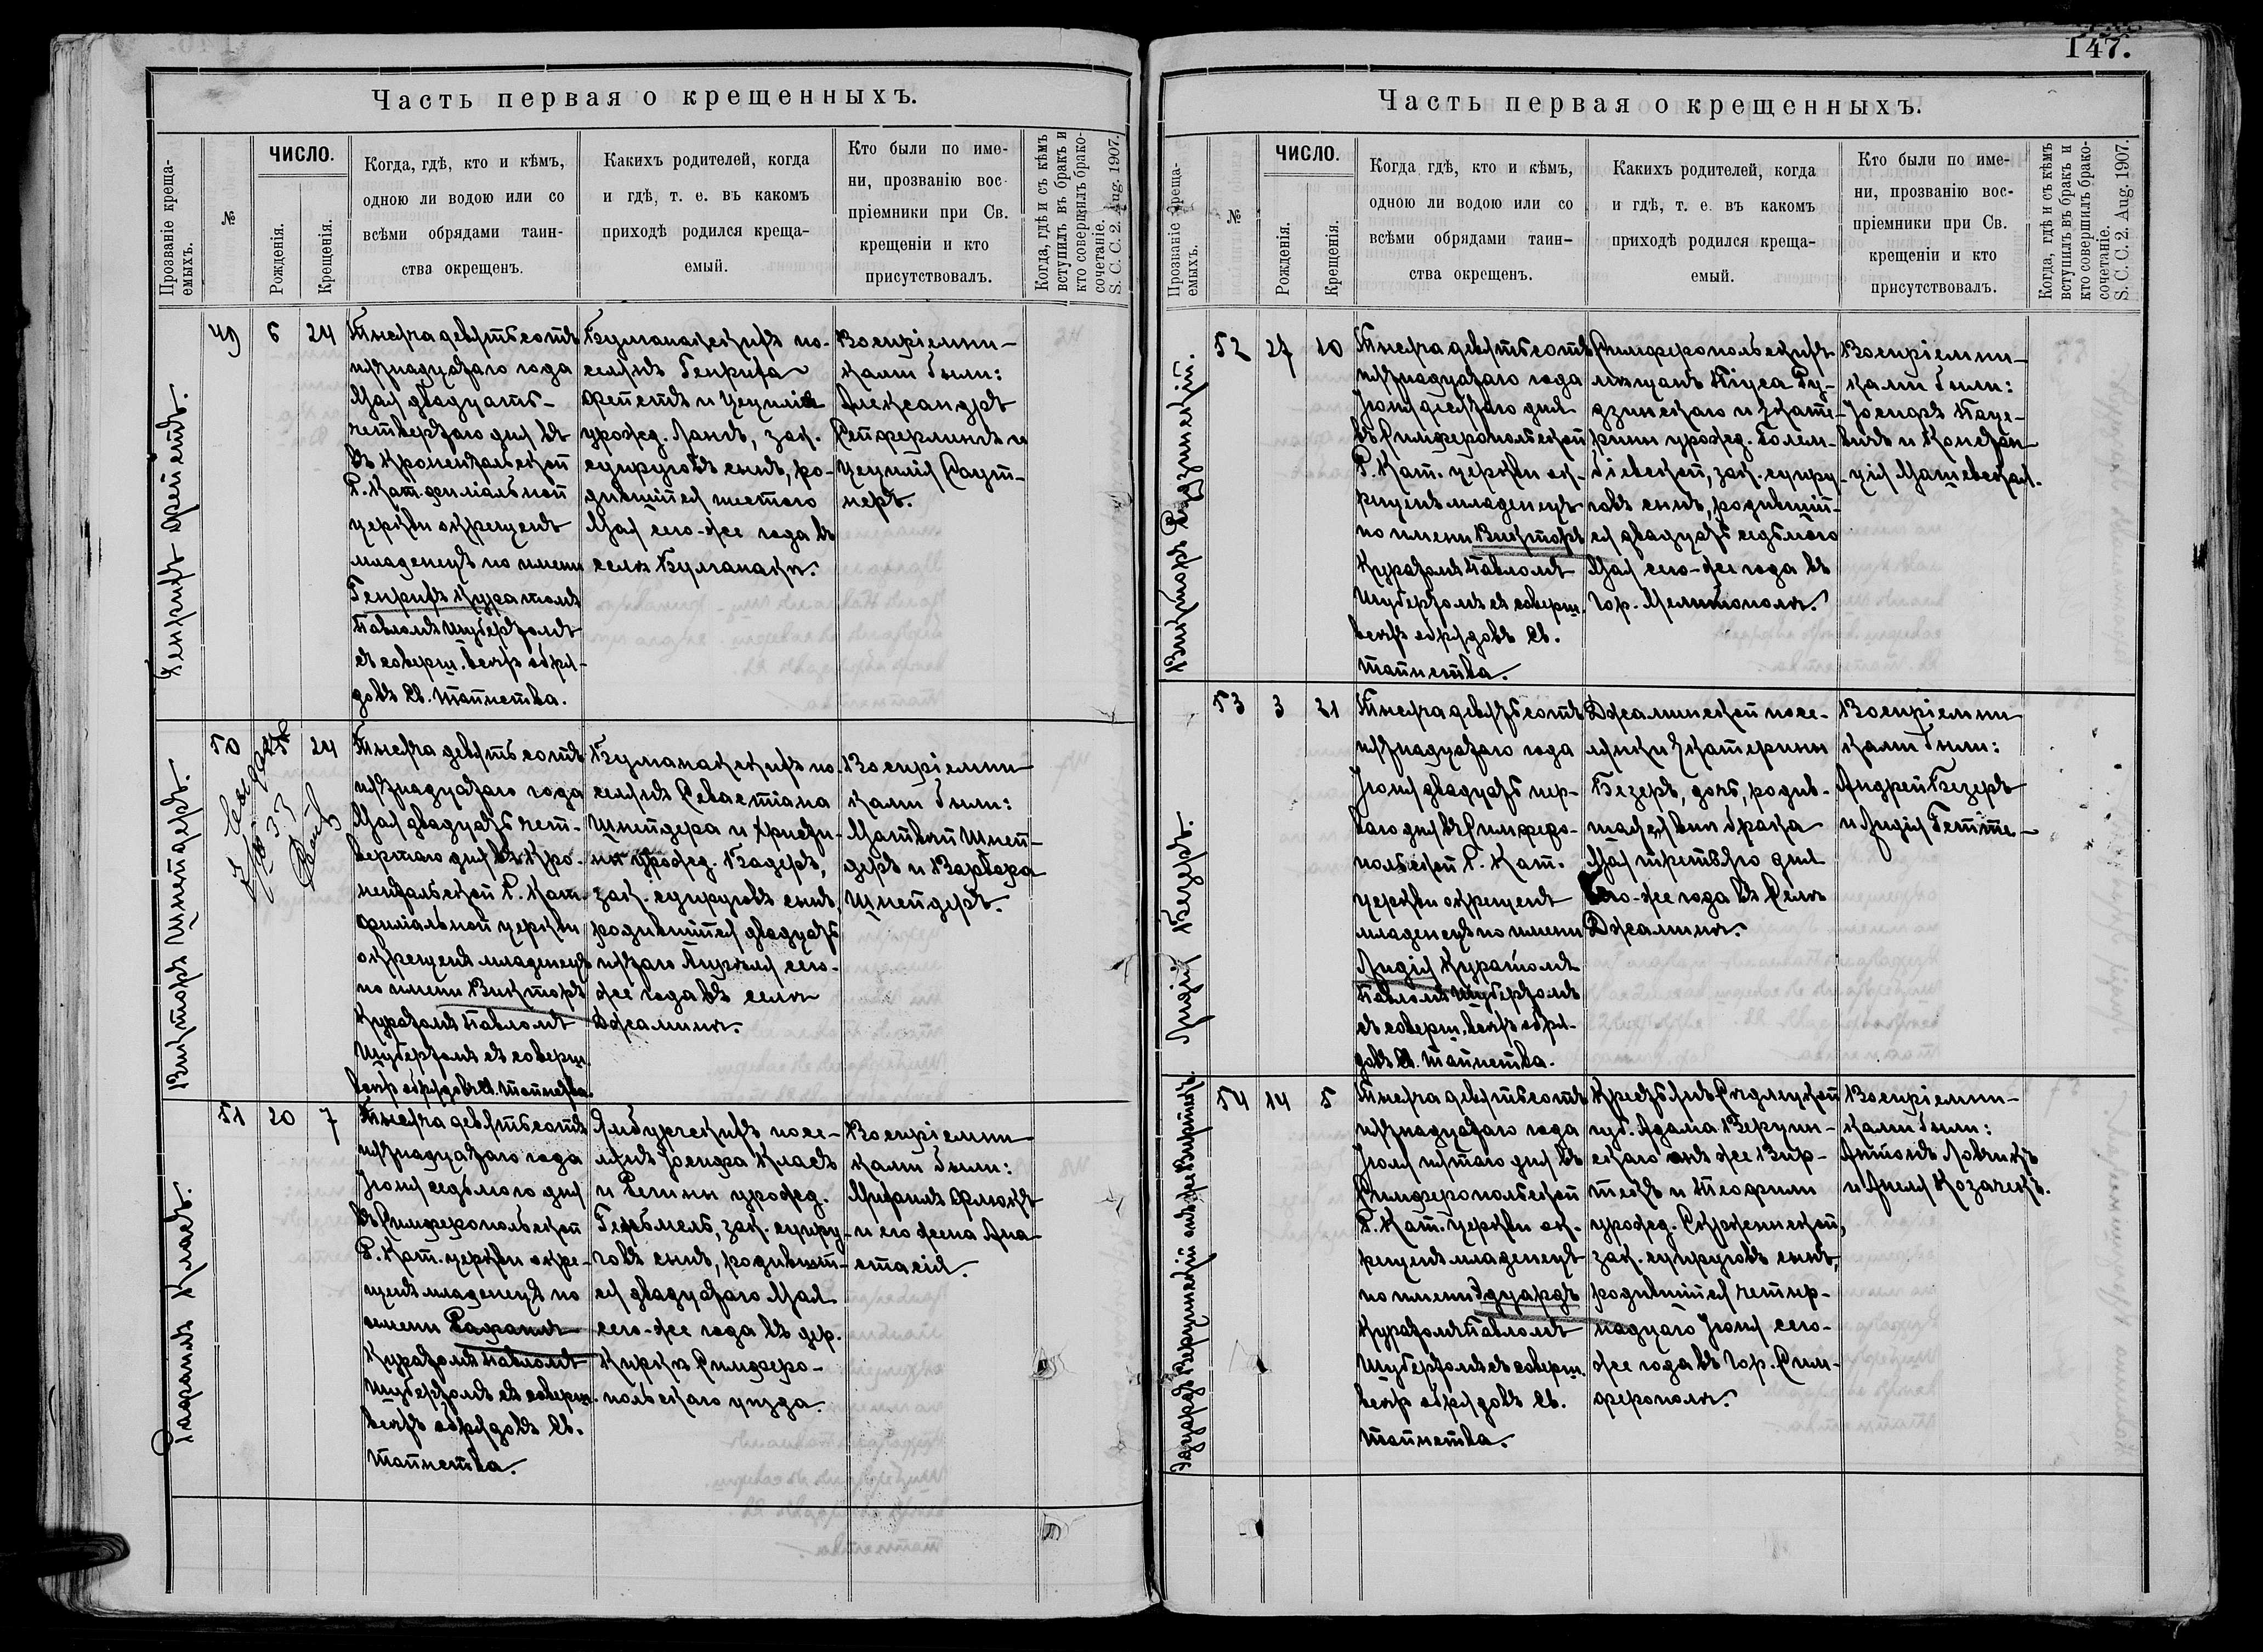 147.
Часть первая о крещенныхъ.
Прозваніе креща-
емыхъ.
№
ЧИСЛО.
Рожденія.
Крещенія.
Когда, гдѣ, кто и кѣмъ,
одною ли водою или со
всѣми обрядами таин-
ства окрещенъ.
Какихъ родителей, когда
и гдѣ, т. е. въ какомъ
приходѣ родился креща-
емый.
Кто были по име-
ни, прозванію вос-
пріемники при Св.
крещеніи и кто
присутствовалъ.
Когда, гдѣ и съ кѣмъ
вступилъ въ бракъ и
кто совершилъ брако-
сочетаніе.
S. C. C. 2. Aug. 1907.
Генрихъ Фрейтенъ.
49
6
24
Тысяча девятьсотъ
пятнадцатаго года
Мая двадцать-
четвертаго дня въ
въ Кроненталской
Р. Кат. филіальной
церкви окрещенъ
младенецъ по имени
Генрихъ Куратомъ
Павломъ Шубертомъ
съ соверш. всѣхъ обря-
довъ Св. таинства.
Булганакскихъ по-
селянъ Генриха
и Цециліи
урожд. Лангъ, зак.
супруговъ сынъ, ро-
дившійся шестого
Мая сего-же года въ
селѣ Булганакѣ.
Воспріемни-
ками были:
Александръ
и
Цецилія
Викторъ Шнейдеръ.
50
24
Тысяча девятьсотъ
пятнадцатаго года
Мая двадцать чет-
вертаго дня въ Кро-
нентальской Р. Кат.
филіальной церкви
окрещенъ младенецъ
по имени Викторъ
Куратомъ Павломъ
Шубертомъ съ соверш.
всѣхъ обрядовъ Св. таинства.
Булганакскихъ по-
селянъ Севастіана
Шнейдера и Христи-
ны урожд. Бадеръ,
зак. супруговъ сынъ,
родившійся двадцать
пятаго Апрѣля сего-
же года въ селѣ
Джалминѣ.
Воспріемни-
ками были:
Матвѣй Шней-
деръ и Варвара
Шнейдеръ.
Рафаилъ Класъ.
51
20
7
Тысяча девятьсотъ
пятнадцатаго года
Іюня седьмого дня
въ Симферопольской
Р. Кат. церкви окре-
щенъ младенецъ по
имени Рафаилъ
Куратомъ Павломъ
Шубертомъ съ соверш.
всѣхъ обрядовъ Св.
таинства.
Ямбургскихъ посе-
лянъ Іосифа Класъ
и Регины урожд.
зак. супру-
говъ сынъ, родившій-
ся двадцатаго Мая
сего-же года въ дер.
Киркъ Симферо-
польскаго уѣзда.
Воспріемни-
ками были:
и его жена Ана-
стасія.
Часть первая о крещенныхъ.
Прозваніе креща-
емыхъ.
№
ЧИСЛО.
Рожденія.
Крещенія.
Когда гдѣ, кто и кѣмъ,
одною ли водою или со
всѣми обрядами таин-
ства окрещенъ.
Какихъ родителей, когда
и гдѣ, т. е. въ какомъ
приходѣ родился креща-
емый.
Кто были по име-
ни, прозванію вос-
пріемники при Св.
крещеніи и кто
присутствовалъ.
Когда, гдѣ и съ кѣмъ
вступилъ въ бракъ и
кто совершилъ брако-
сочетаніе.
S. C. C. 2. Aug. 1907.
Викторъ Рудзинскій.
52
27
10
Тысяча девятьсотъ
пятнадцатаго года
Іюня десятаго дня
въ Симферопольской
Р. Кат. церкви ок-
рещенъ младенецъ
по имени Викторъ
Куратомъ Павломъ
Шубертомъ съ соверш.
всѣхъ обрядовъ Св.
таинства.
Симферопольскихъ
мѣщанъ Піуса Ру-
дзинскаго и Екате-
рины урожд. Голем-
біевской, зак. супру-
говъ сынъ, родившій-
ся двадцать седьмого
Мая сего-же года въ
гор. Мелитополѣ.
Воспріемни-
ками были:
Іосифъ Паце-
вичъ и Констан-
ція Мацневская.
Лидія Безеръ.
53
3
21
Тысяча девятьсотъ
пятнадцатаго года
Іюня двадцать пер-
ваго дня въ Симферо-
польской Р. Кат.
церкви окрещенъ
младенецъ по имени
Лидія Куратомъ
Павломъ Шубертомъ
съ соверш. всѣхъ обря-
довъ Св. таинства.
Джалминской посе-
лянки Екатерины
Безеръ, дочь, родив-
шаяся внѣ брака
Мая третьяго дня
сего-же года въ селѣ
Джалминѣ.
Воспріемни-
ками были:
Андрей Безеръ
и Лидія
54
14
5
Тысяча девятьсотъ
пятнадцатаго года
Іюля пятаго дня въ
Симферопольской
Р. Кат. церкви ок-
рещенъ младенецъ
по имени Эдуардъ
Куратомъ Павломъ
Шубертомъ съ соверш.
всѣхъ обрядовъ Св.
таинства.
Крестьянъ Сѣдлецкой
губ. Адама
и Теофили
урожд.
зак. супруговъ сынъ,
родившійся четыр-
надцаго Іюня сего-
же года въ гор. Сим-
ферополѣ.
Воспріемни-
ками были:
Антонъ Ловчикъ
и Анеля Козачекъ.